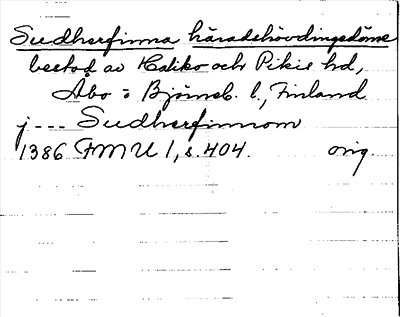 Sudherfinna häradshövdingedöme
bestod av Haliko och Pikie hd,
Åbo o Björneb. l., Finland
j --- Sudherfinnom
1386 FMU 1, s. 404. orig.